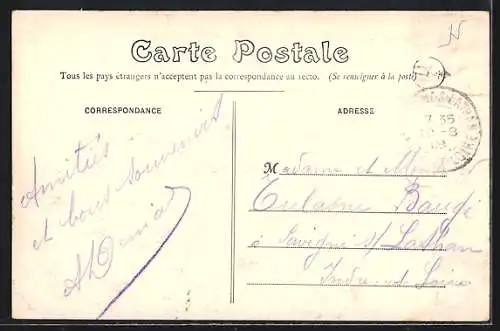 Carte Postale
Tous les pays étrangers n'acceptent pas la correspondance au recto. (Se renseigner à la poste)
CORRESPONDANCE
ADRESSE
Amitiés
et bons souvenirs
Madame et
à Savigné s/ Lathan
Indre-et-Loire